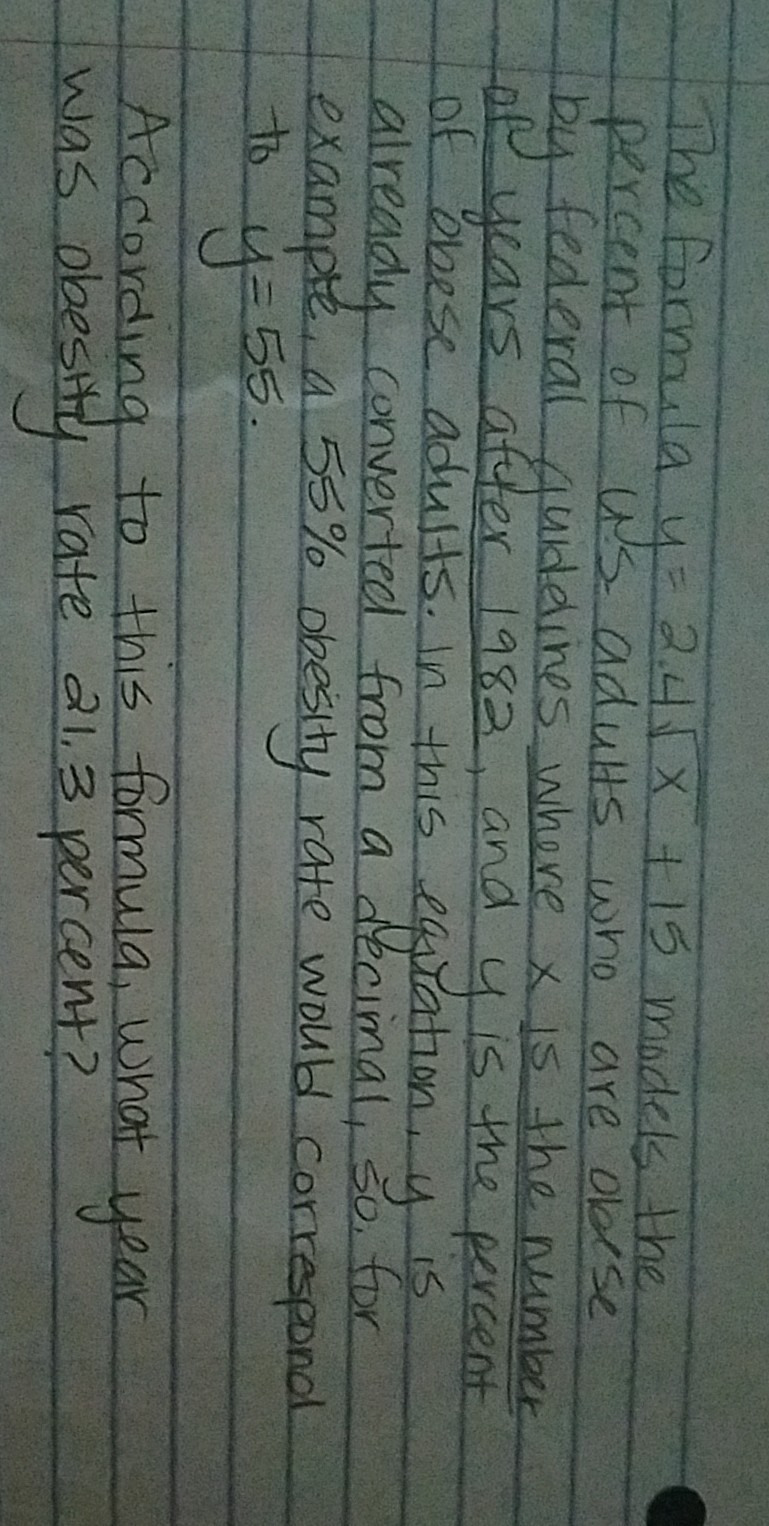 The formula y = 2.4√x + 15 models the
percent of US adults who are obese
by federal guidelines where x is the number
of years after 1982, and y is the percent
of obese adults. In this equation, y is
already converted from a decimal, so, for
example, a 55% obesity rate would correspond
to y = 55.
According to this formula, what year
was obesity rate 21.3 percent?